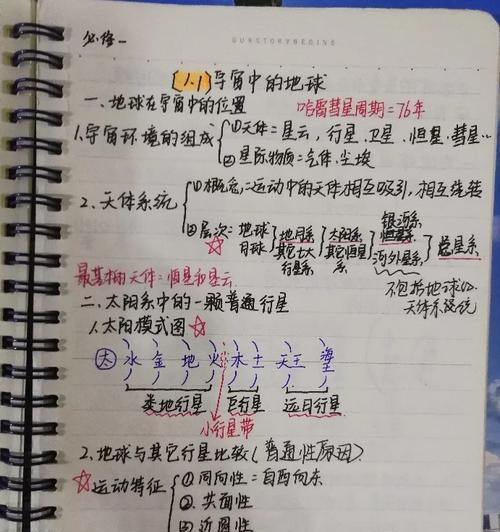 必修一
OURSTORYBEGINS
1.1 宇宙中的地球
一、地球在宇宙中的位置
哈雷彗星周期=76年
1.宇宙环境的组成
①天体=星云,行星、卫星、恒星·彗星…
②星际物质=气体、尘埃
2.天体系统
①概念:运动中的天体相互吸引,相互绕转
②层次:地球 月球
地月系 其它七大行星系
太阳系 其它恒星系
银河系
河外星系
总星系
不包括地球以
天体系统
最基本的天体=恒星和星云
二、太阳系中的一颗普通行星
1.太阳模式图
太 水 金 地 火 木 土 天王 海王
类地行星 巨行星 远日行星
小行星带
2.地球与其它行星比较(普通性原因)
运动特征
①同向性=自西向东
②共面性
③近圆性